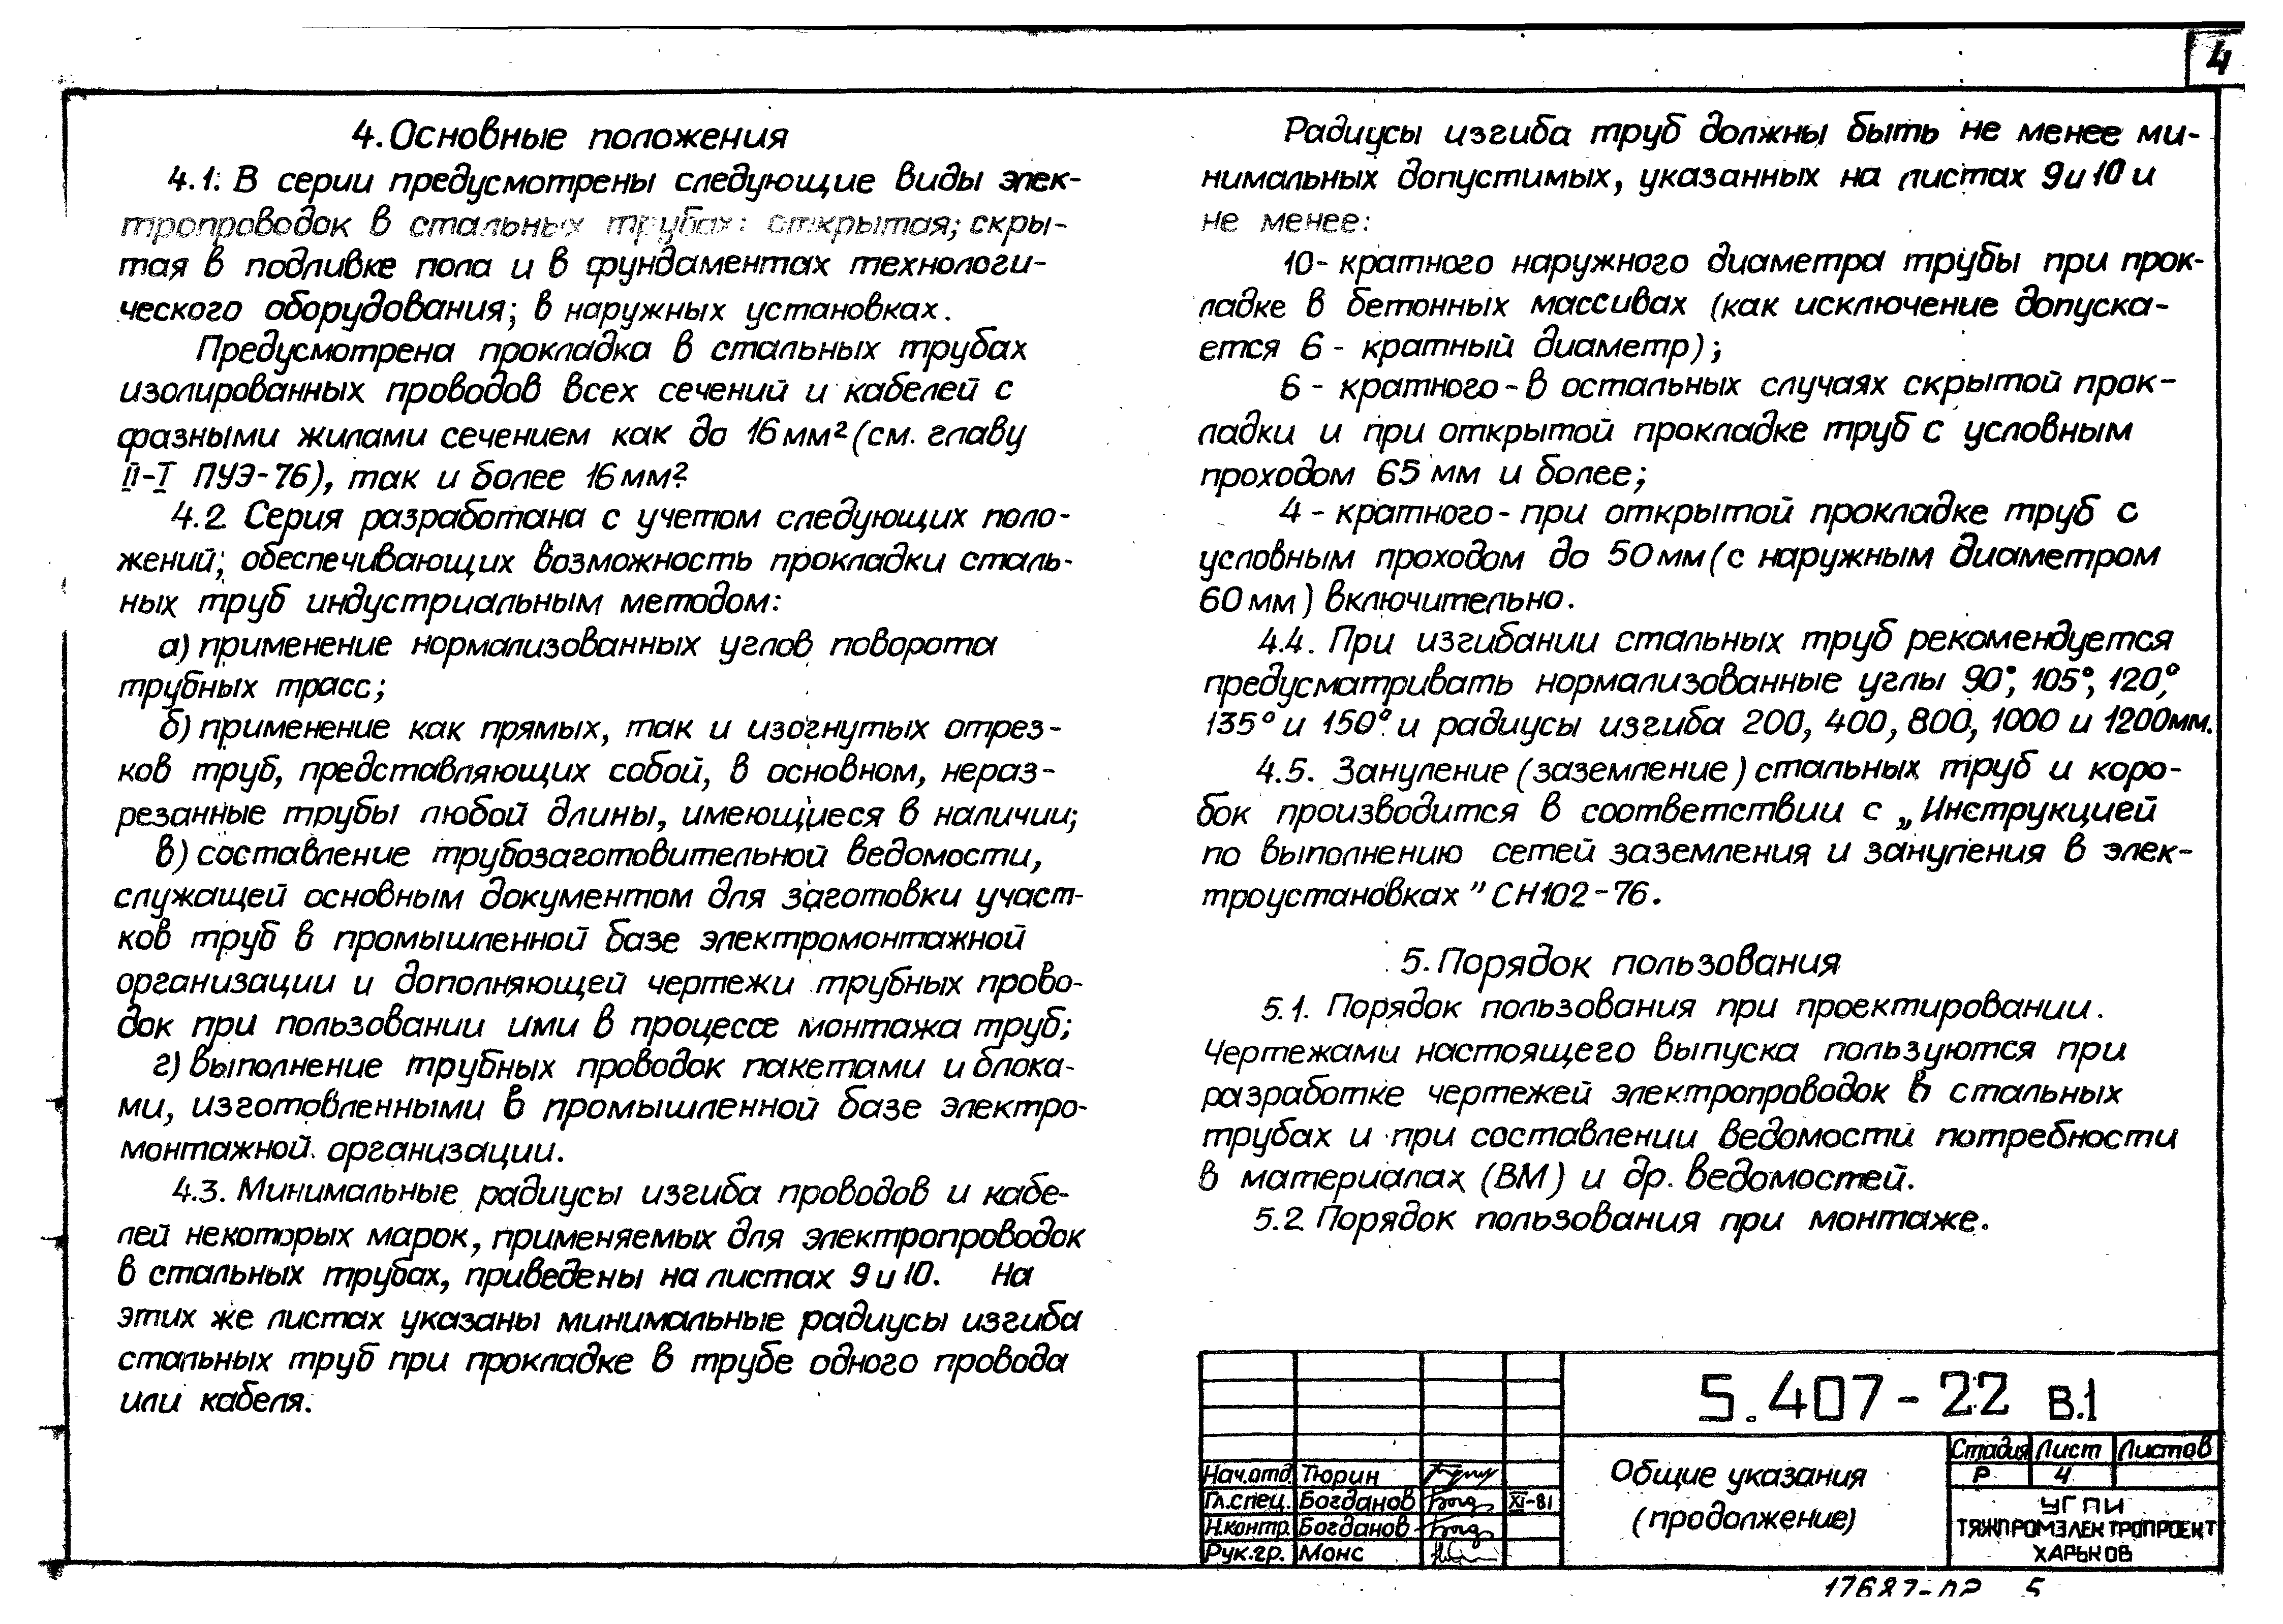 4
4. Основные положения
4.1. В серии предусмотрены следующие виды элек-
тропроводок в стальных трубах: открытая; скры-
тая в подливке пола и в фундаментах технологи-
ческого оборудования; в наружных установках.
Предусмотрена прокладка в стальных трубах
изолированных проводов всех сечений и кабелей с
фазными жилами сечением как до 16 мм² (см. главу
II-I ПУЭ-76), так и более 16 мм².
4.2 Серия разработана с учетом следующих поло-
жений, обеспечивающих возможность прокладки сталь-
ных труб индустриальным методом:
а) применение нормализованных углов поворота
трубных трасс;
б) применение как прямых, так и изогнутых отрез-
ков труб, представляющих собой, в основном, нераз-
резанные трубы любой длины, имеющиеся в наличии;
в) составление трубозаготовительной ведомости,
служащей основным документом для заготовки участ-
ков труб в промышленной базе электромонтажной
организации и дополняющей чертежи трубных прово-
док при пользовании ими в процессе монтажа труб;
г) выполнение трубных проводок пакетами и блока-
ми, изготовленными в промышленной базе электро-
монтажной организации.
4.3. Минимальные радиусы изгиба проводов и кабе-
лей некоторых марок, применяемых для электропроводок
в стальных трубах, приведены на листах 9 и 10. На
этих же листах указаны минимальные радиусы изгиба
стальных труб при прокладке в трубе одного провода
или кабеля.
Радиусы изгиба труб должны быть не менее ми-
нимальных допустимых, указанных на листах 9 и 10 и
не менее:
10-кратного наружного диаметра трубы при прок-
ладке в бетонных массивах (как исключение допуска-
ется 6-кратный диаметр);
6-кратного - в остальных случаях скрытой прок-
ладки и при открытой прокладке труб с условным
проходом 65 мм и более;
4-кратного - при открытой прокладке труб с
условным проходом до 50 мм (с наружным диаметром
60 мм) включительно.
4.4. При изгибании стальных труб рекомендуется
предусматривать нормализованные углы 90°, 105°, 120°,
135° и 150° и радиусы изгиба 200, 400, 800, 1000 и 1200мм.
4.5. Зануление (заземление) стальных труб и коро-
бок производится в соответствии с „Инструкцией
по выполнению сетей заземления и зануления в элек-
троустановках" СН102-76.
5. Порядок пользования
5.1. Порядок пользования при проектировании.
Чертежами настоящего выпуска пользуются при
разработке чертежей электропроводок в стальных
трубах и при составлении ведомости потребности
в материалах (ВМ) и др. ведомостей.
5.2 Порядок пользования при монтаже.
5.407-22 В.1
Нач.отд. Тюрин
Гл.спец. Богданов XI-81
Н.контр. Богданов
Рук.гр. Монс
Общие указания
(продолжение)
Стадия Лист Листов
Р 4
УГПИ
ТЯЖПРОМЭЛЕКТРОПРОЕКТ
ХАРЬКОВ
17687-02 5